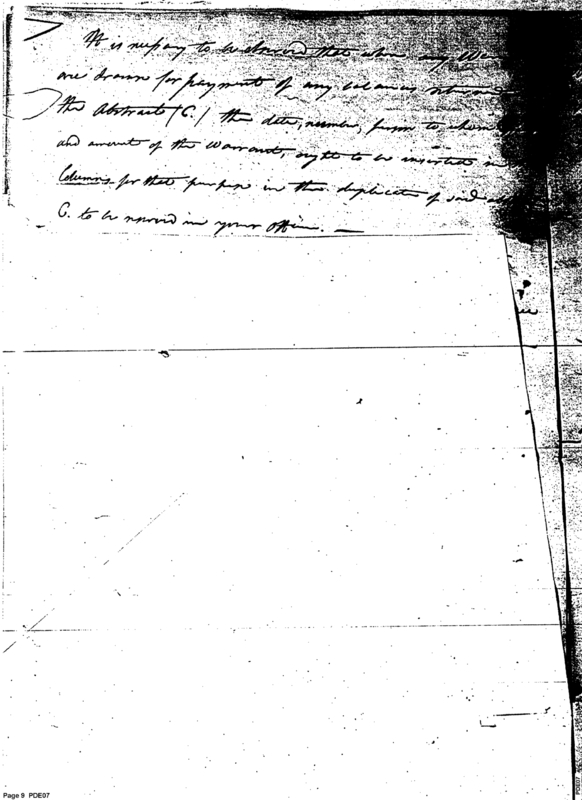 It is nessary to be observed that when any War
are drawn for payment of any balances
the Abstracts (C.) the date, number, person to whom
and amount of the warrant, ought to be inserted in
Columns for that purpose in the duplicates of said
C. to be  in your office. —
Page 9 PDE07
PDE07